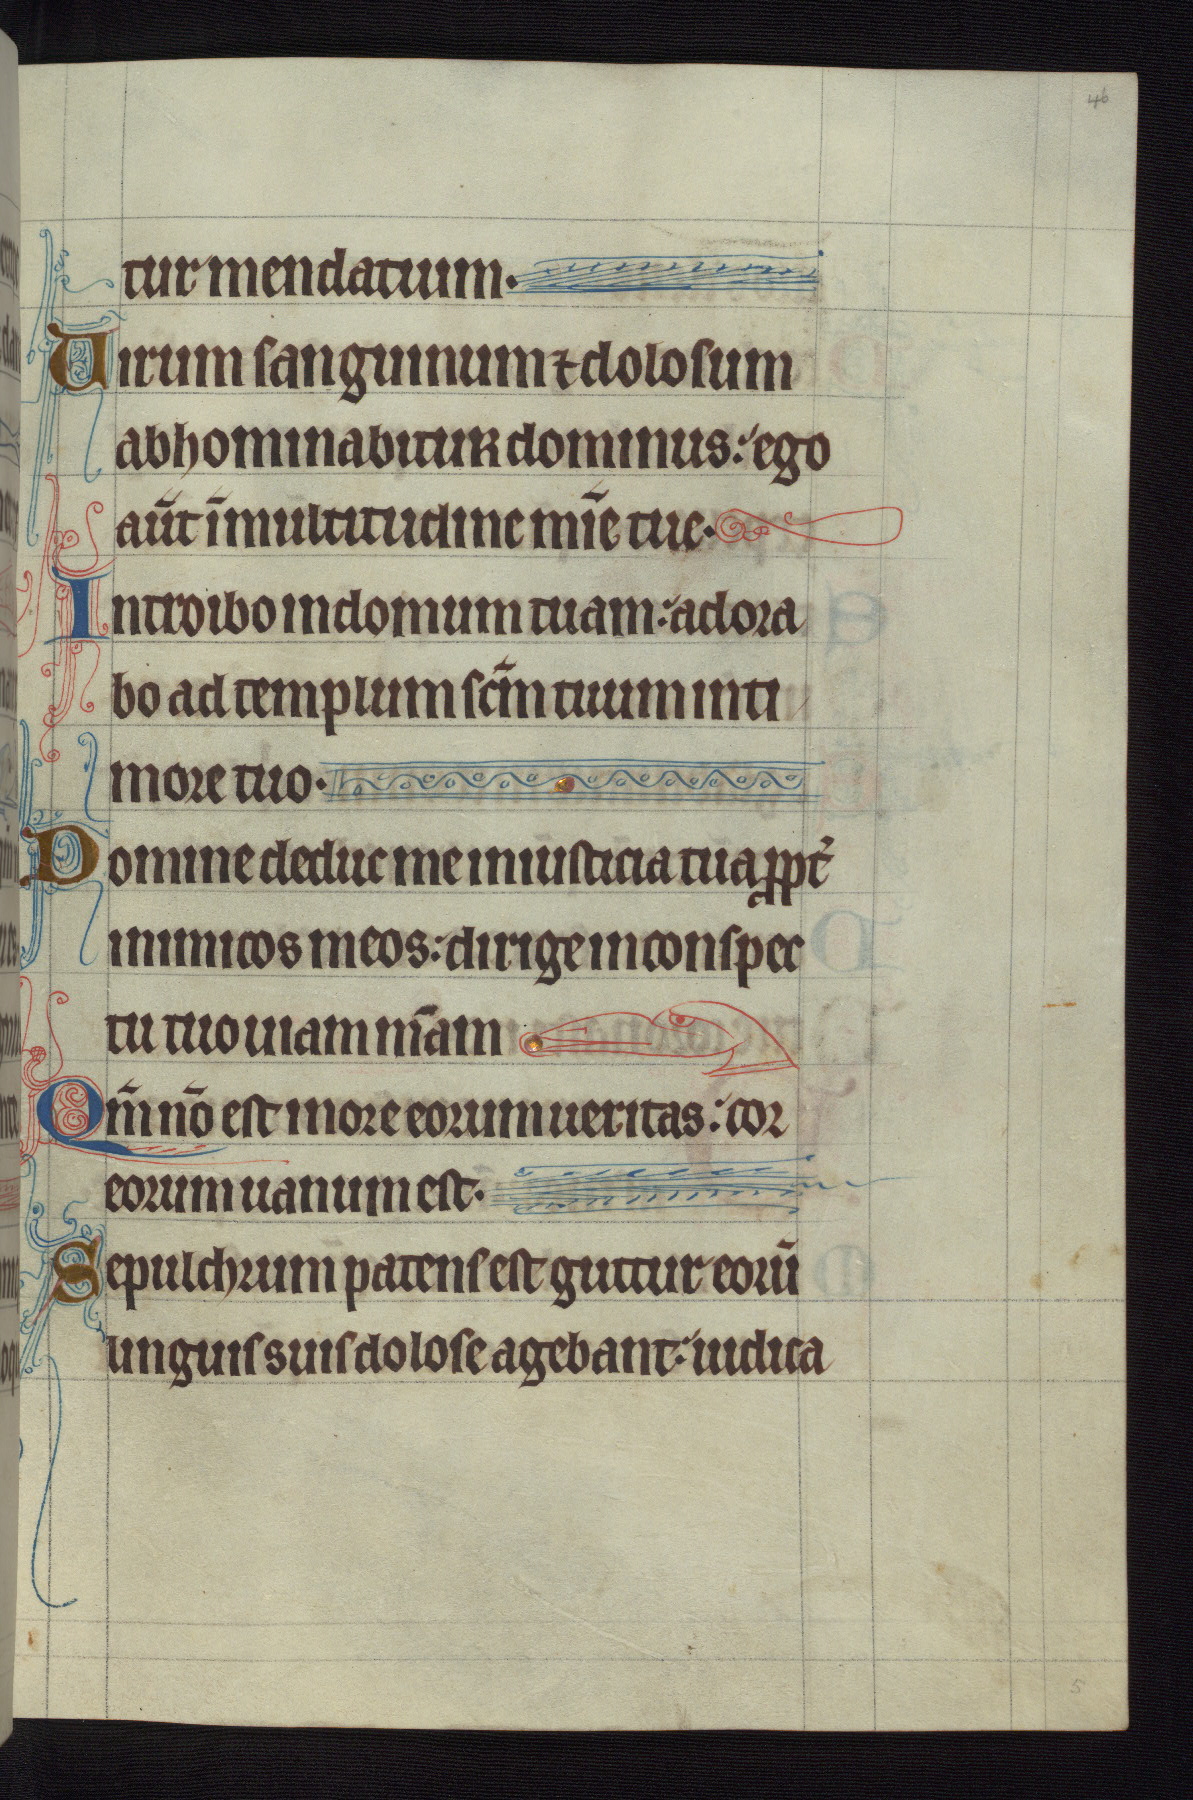 46
tur mendatium.
Uirum sanguinum ⁊ dolosum
abhominabitur dominus: ego
aūt ī multitudine mīe tue.
Introibo in domum tuam: adora
bo ad templum scm̄ tuum in ti
more tuo.
Domine deduc me in iusticia tua ꝓpt̄
inimicos meos: dirige in conspec
tu tuo uiam m̄am
Qm̄ nō est in ore eorum ueritas: cor
eorum uanum est.
Sepulchrum patens est guttur eorū
linguis suis dolose agebant: iudica
5